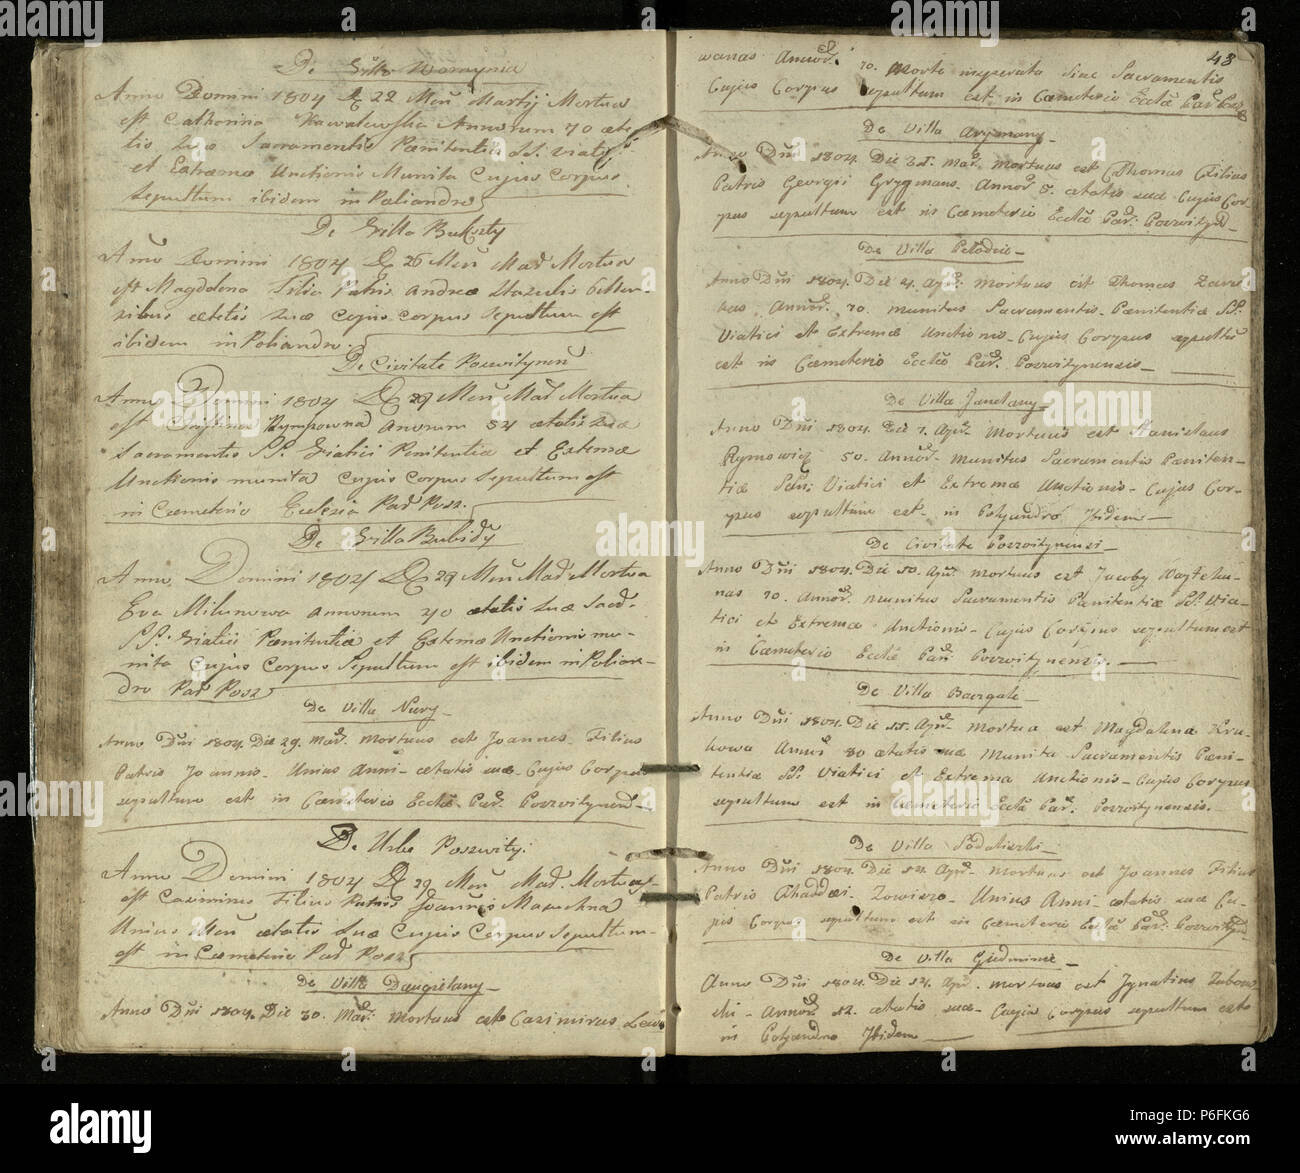 De Villa Womynia
Anno Domini 1804 D 22 Men Martij Mortua
est Catharina Kawalewska Annorum 70 æta-
tis suæ Sacramentis Pænitentiæ SS. Viatici
et Extremæ Unctionis Munita Cujus Corpus
Sepultum ibidem in Poliandro
De Villa Bukszty
Anno Domini 1804 D 26 Men Mad Mortua
est Magdalena Filia Patris Andreæ 6 Men-
sibus ætatis suæ Cujus Corpus Sepultum est
ibidem in Poliandro.
De Civitate Poszwitynen
Anno Domini 1804 D 29 Men Mad Mortua
est Rympowna Anorum 54 ætatis suæ
Sacramentis SS. Viatici Penitentiæ et Extemæ
Unctionis munita Cujus Corpus Sepultum est
in Cæmeterio Eclesia Pad Posz.
De Villa Bubidy
Anno Domini 1804 D 29 Men Mad Mortua
Eva Milunowa annorum 40 ætatis suæ Sacd.
SS. Viatici Pænitentiæ et Extemæ Unctionis mu-
nita Cujus Corpus Sepultum est ibidem in Polian-
dro Pad Posz
De Villa Nury
Anno Dni 1804. Die 29. Mad. Mortuus est Joannes Filius
Patris Joannis Unius Anni ætatis suæ Cujus Corpus
sepultum est in Cæmeterio Ecclæ Par. Poszwitynens
De Urbe Poszwity:
Anno Domini 1804 D 29 Men Mad. Mortuus
est Casimirus Filius Patris Joannis
Unius Men ætatis suæ Cujus Corpus Sepultum
est in Cæmeterio Pad Posz
De Villa Daugielany
Anno Dni 1804. Die 30. Mar. Mortuus est Casimirus Lew
48
wanas Annor. 70. Morte insperata sine Sacramentis
Cujus Corpus sepultum est in Cæmeterio Ecclæ Par Posz
De Villa Arymany
Anno Dni 1804. Die 31. Mar. mortuus est Thomas Filius
Patris Georgii Grygmans. Annor. 5. ætatis suæ Cujus Cor-
pus sepultum est in Cæmeterio Ecclæ Par. Poszwityn
De Villa Pelodzie
Anno Dni 1804. Die 4. Apr. mortuus est Thomas
kas Annor. 70. munitus Sacramentis Pænitentiæ SS.
Viatici et Extremæ Unctionis Cujus Corpus sepultu
est in Cæmeterio Ecclæ Par. Poszwitynensis
De Villa Janelany
Anno Dni 1804. Die 7. Apr. Mortuus est Stanislaus
Rymowicz 50. Annor. munitus Sacramentis Pæniten-
tiæ Viatici et Extremæ Unctionis Cujus Cor-
pus sepultum est in Polyandro Ibidem
De Civitate Poszwitynensi
Anno Dni 1804. Die 10. Apr. mortuus est Jacoby Woytchu-
nas 70. Annor. munitus Sacramentis Pænitentiæ SS. Via-
tici et Extremæ Unctionis Cujus Corpus sepultum est
in Cæmeterio Ecclæ Par. Poszwitynensis.
De Villa Bargale
Anno Dni 1804. Die 11. Apr. Mortua est Magdalena Kru-
kowa Annor 30 ætatis suæ Munita Sacramentis Pæni-
tentiæ SS. Viatici et Extrema Unctionis Cujus Corpus
sepultum est in Cæmeterio Ecclæ Par. Poszwitynensis.
De Villa
Anno Dni 1804. Die 14. Apr. mortuus est Joannes Filius
Patris Thaddæi Unius Anni ætatis suæ Cu-
jus Corpus sepultum est in Cæmeterio Ecclæ Par. Poszwityn
De Villa Giedminie
Anno Dni 1804. Die 14. Apr. mortuus est Ignatius
Annor. 12. ætatis suæ Cujus Corpus sepultum est
in Polyandro Ibidem
alamy
alamy
Image ID: P6FKG6
www.alamy.com